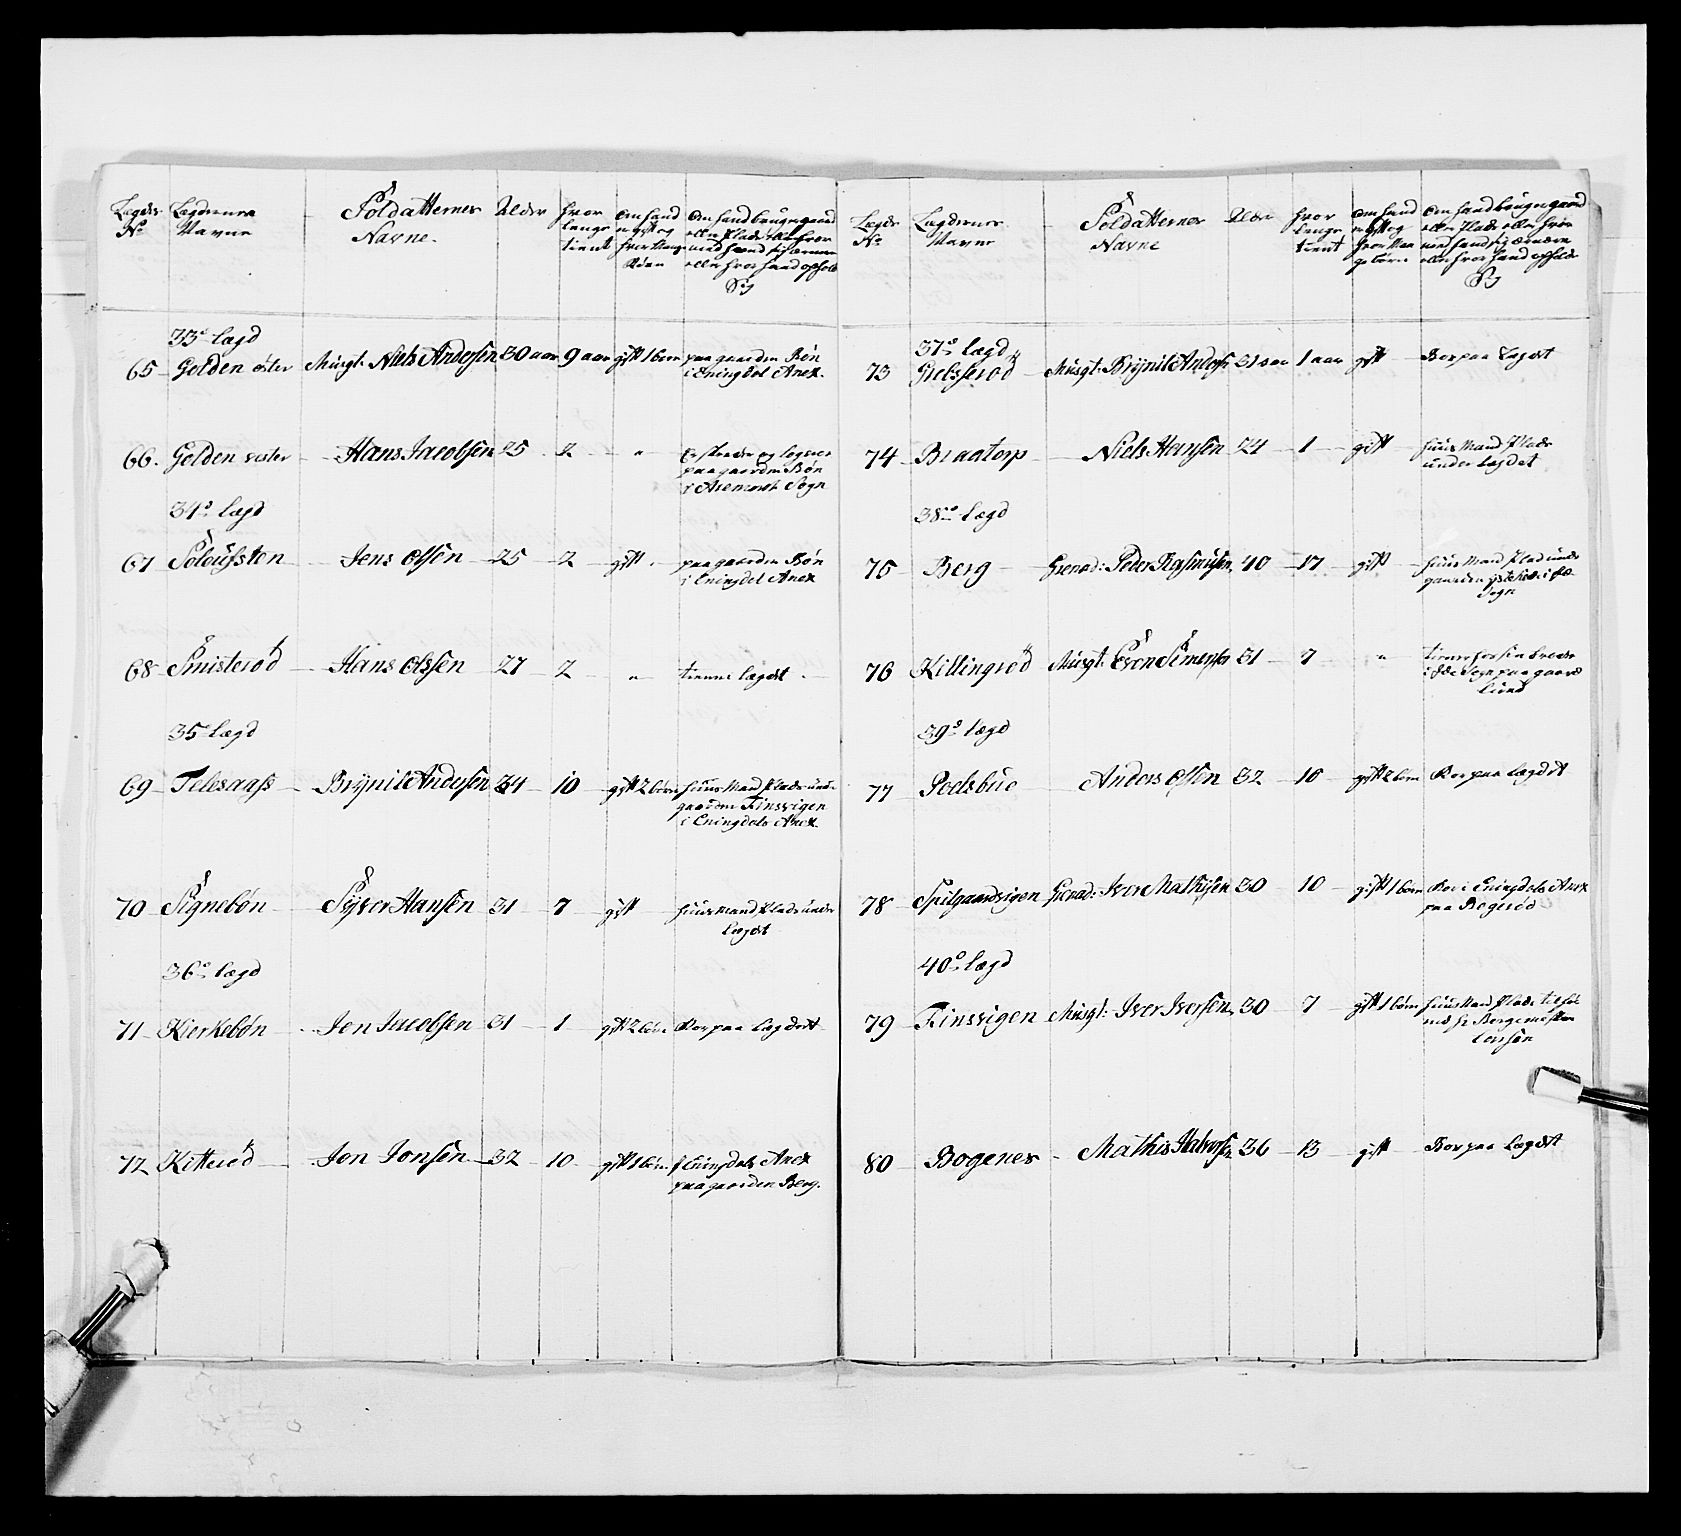 Lægder No
Lægdernes Navne
Soldatternes Navne.
Alder
hvor lange tient
om hand er gift og
om hand bruger gaard
eller hvor hand ophold
Sig
33e Lægd
65 Golden öster Musqt: Niels Andersen 30 aar 9 aar gift 1 barn paa gaarden Bøn
i Eningdal Anex.
66. Golden vester Hans Jacobsen 25 2 "
paa gaarden Bøn
i Aremark Sogn
34e Lægd
67 Jens Olsen 25 2 gift paa gaarden Bøn
i Eningdal Anex
68 Smisterød Hans Olssen 27 2 " tienner lægdet
35e Lægd
69 Brynild Andersen 34 10 gift 2 børn huus Mands Plads unde
gaarden Finsvigen
i Eningdals Anex.
70 Signebøn Syver Hansen 31 7 gift huus mands Plads under
Lægdet
36e Lægd
71 Kierkebøn Jon Jacobsen 31 1 gift 2 børn Boer paa Lægdet
72 Kitterød Jon Jonsen 32 10 gift 1 barn i Eningdals Anex
paa gaarden Berg.
Lægde No
Lægdernes Navne
Soldatternes Navne
Alder
hvor lange tient
om hand er gift og
om hand bruger gaard
eller Plads eller hvor
eller hvor hand opholde
Sig
37e Lægd
73 Grebsserød Musqt: Brynild Anders: 31 aar 1 aar gift Boer paa Lægdet
74 Braatorp Niels Hansen 24 1 gift huus Mands Plads
under Lægdet
38e Lægd
75 Berg Grenad: Peder Rasmusen 40 17 gift huus Mands Plads unde
gaarden
Sogn
76 Killingrød Musqt: Even Simensen 31 7 "
Sogn paa gaard
Lund
39e Lægd
77 Poelsbue Anders Olsen 32 10 gift 2 børn Boer paa Lægdet
78 Spilgaardvigen Grenad: Iver Mathisen 30 10 gift 1 barn Boer i Eningdals Anex
paa Bøgerød
40e Lægd
79 Finsvigen Musqt: Iver Iversen 30 7 gift 1 barn huus Mands Plads
Borgemester
80 Bogenes Mathis Halvorsen 36 13 gift Boer paa Lægdet